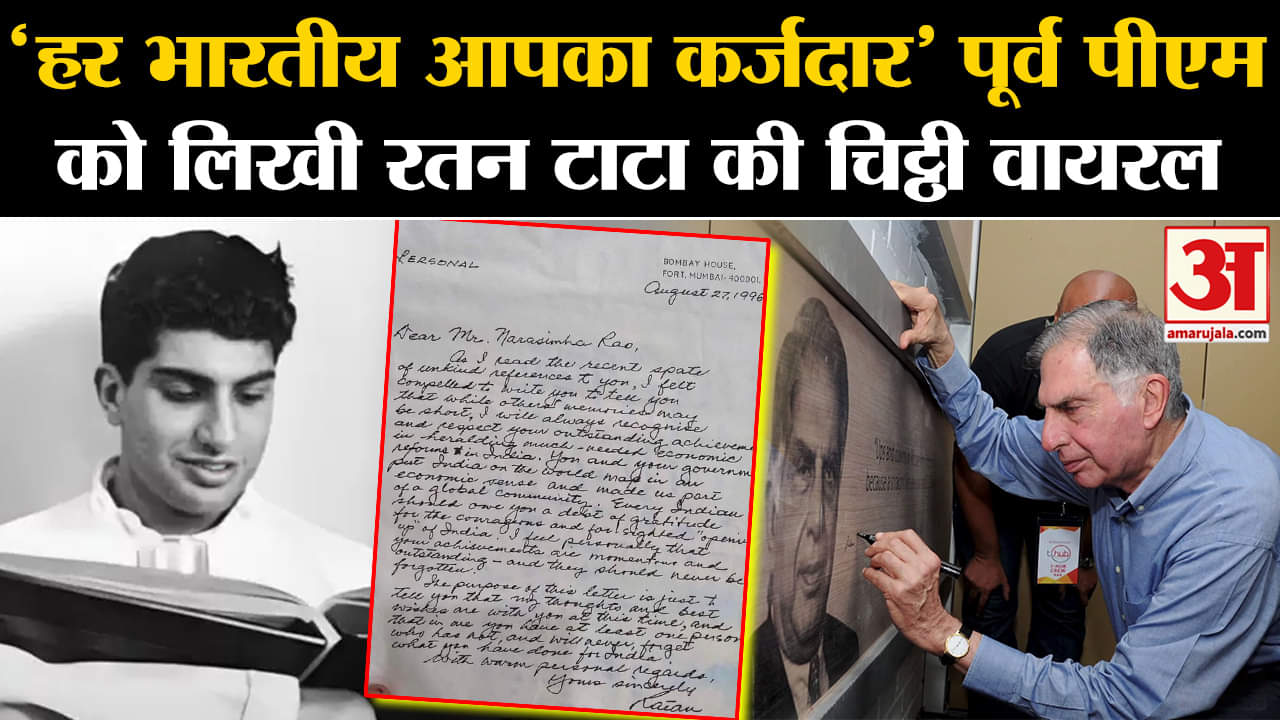 ‘हर भारतीय आपका कर्जदार’ पूर्व पीएम
को लिखी रतन टाटा की चिट्ठी वायरल
PERSONAL
BOMBAY HOUSE,
FORT, MUMBAI-400001.
August 27, 1996
Dear Mr. Narasimha Rao,
As I read the recent spate
of unkind references to you, I felt
compelled to write you to tell you
that while others' memories may
be short, I will always recognise
and respect your outstanding achieveme
in heralding much-needed economic
reforms in India. You and your governm
put India on the world map in an
economic sense and made us part
of a global community. Every Indian
should owe you a debt of gratitude
for the courageous and far sighted "openin
up" of India. I feel personally that
your achievements are momentous and
outstanding - and they should never be
forgotten.
The purpose of this letter is just to
tell you that my thoughts and best
wishes are with you at this time, and
that in me you have at least one person
who has not, and will never, forget
what you have done for India.
With warm personal regards,
Yours sincerely
Ratan
अ
amarujala.com
t hub
CREW